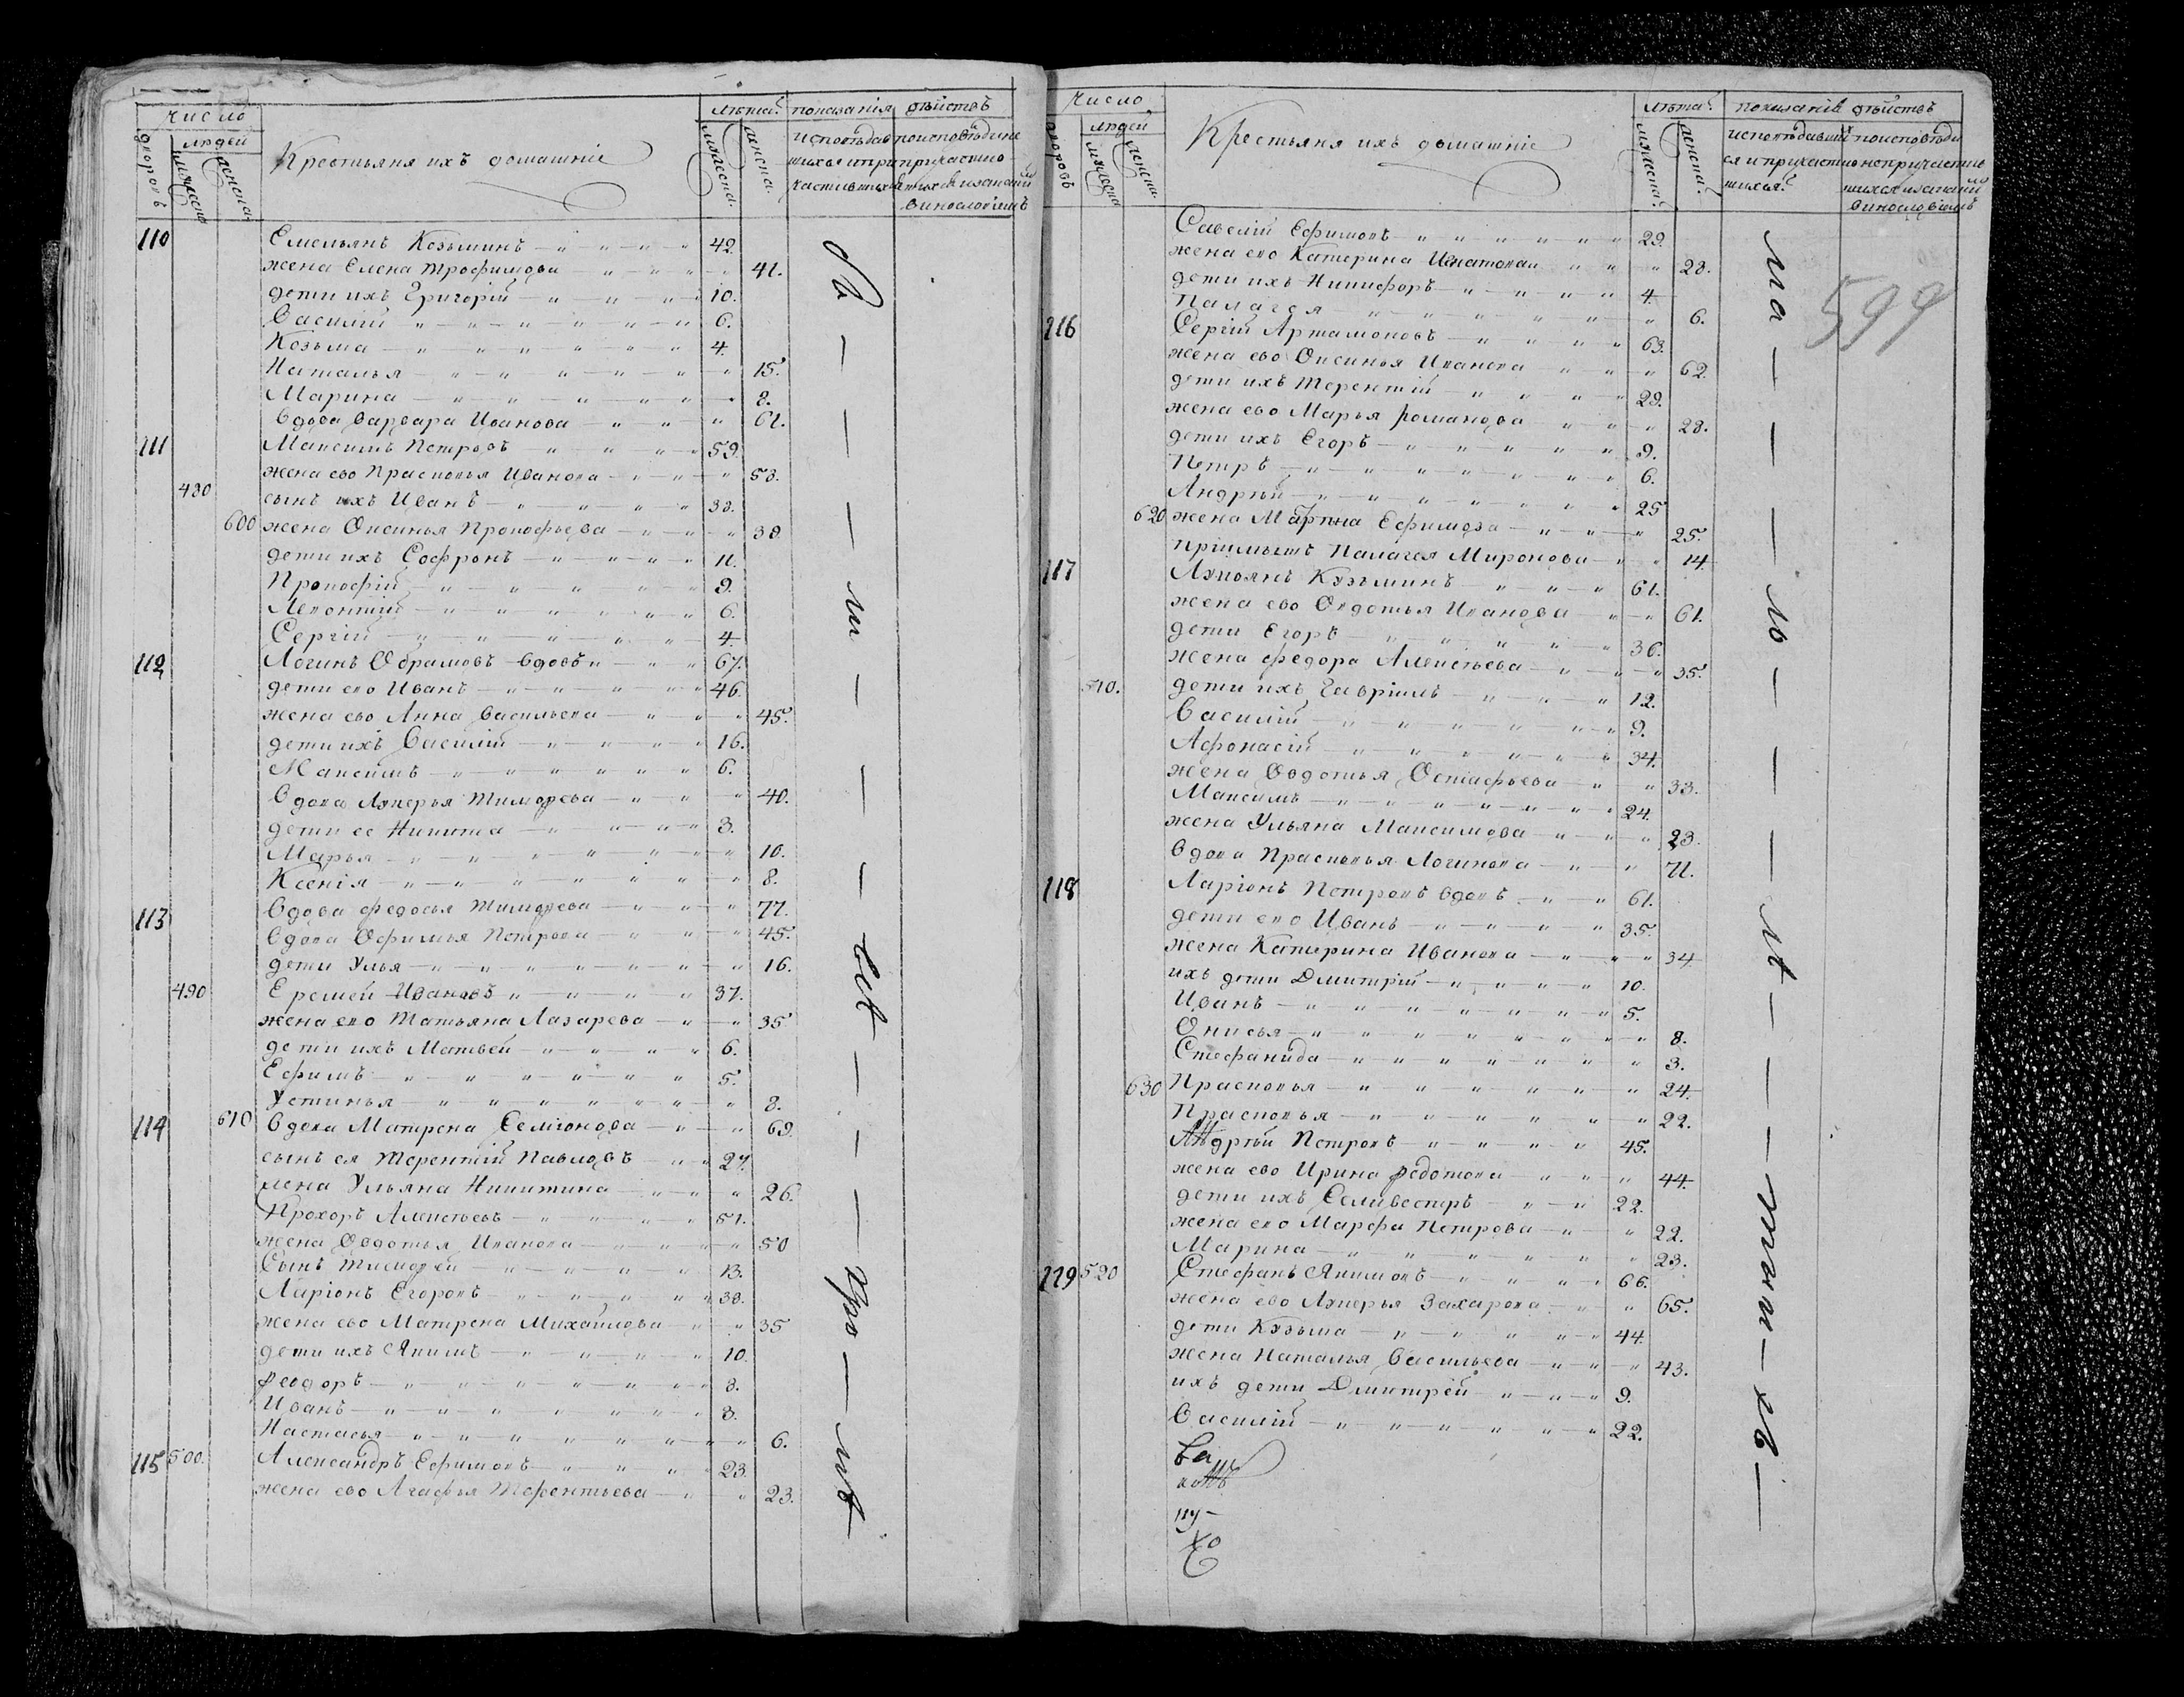 число
лѣта. показанія дѣйствъ
дворовъ
людей
мужеска
женска.
Крестьяня ихъ домашніе
мужеска.
женска.
110 Емельянъ Козьминъ 42.
жена Елена Трофимова 41.
дети ихъ Григорій 10.
Василій 6.
Козьма 4.
Наталья 15.
Марина 8.
вдова Варвара Иванова 61.
111 Максимъ Петровъ 59.
жена ево Прасковья Иванова 58.
480 сынъ ихъ Иванъ 38.
600 жена Оксинья Прокофьева 38.
дети ихъ Софронъ 11.
Прокофій 9.
Леонтій 6.
Сергій 4.
112 Логинъ Обрамовъ вдовъ 67.
дети ево Иванъ 46.
жена ево Анна Васильева 45.
дети ихъ Василій 16.
Максимъ 6.
вдова Лукерья Тимофеева 40.
дети ее Никита 3.
Марья 10.
Ксенія 8.
113 вдова Федосья Тимофеева 77.
вдова Офимья Петрова 45.
дети Улья 16.
490 Еремей Ивановъ 37.
жена ево Татьяна Лазарева 35.
дети ихъ Матвей 6.
Ефимъ 5.
Устинья 8.
114 610 вдова Матрена Селіонова 69.
сынъ ея Терентій Павловъ 27.
жена Ульяна Никитина 26.
Прохоръ Алексѣевъ 51.
жена Овдотья Иванова 50
сынъ Тимофей 13.
Ларіонъ Егоровъ 38.
жена ево Матрена Михайлова 35
дети ихъ Якимъ 10.
Федоръ 8.
Иванъ 8.
Настасья 6.
115 500. Александръ Ефимовъ 23.
жена ево Агафья Терентьева 23.
число
лѣта. показаніе дѣйствъ
дворовъ
людей
мужеска
женска.
Крестьяня ихъ домашніе
мужеска.
женска.
599
Савелій Ефимовъ 29.
жена ево Катерина Игнатова 28.
дети ихъ Никифоръ 4.
Палагея 6.
116 Сергій Артамоновъ 63.
жена ево Оксинья Иванова 62.
дети ихъ Терентій 29.
жена ево Марья Романова 28.
дети ихъ Егоръ 9.
Петръ 6.
Андрѣй 25
620 жена Марина Ефимова 25.
пріимышъ Палагея Миронова 14.
117 Лукоянъ Кузьминъ 61.
жена ево Овдотья Иванова 61.
дети Егоръ 36.
жена Федора Алексѣева 35.
510. дети ихъ Гавріилъ 12.
Василій 9.
Афонасій 34.
жена Овдотья Остафьева 33.
Максимъ 24.
жена Ульяна Максимова 23.
вдова Прасковья Логинова 71.
118 Ларіонъ Петровъ вдовъ 61.
дети ево Иванъ 35.
жена Катерина Иванова 34
ихъ дети Дмитрій 10.
Иванъ 5.
Онисья 8.
Стефанида 3.
630 Прасковья 24.
Прасковья 22.
Андрѣй Петровъ 45.
жена ево Ирина Федотова 44.
дети ихъ Селивестръ 22.
жена ево Марфа Петрова 22.
Марина 23.
119 520 Стефанъ Якимовъ 66.
жена ево Лукерья Захарова 65.
дети Кузьма 44.
жена Наталья Васильева 43.
ихъ дети Дмитрей 9.
Василій 22.